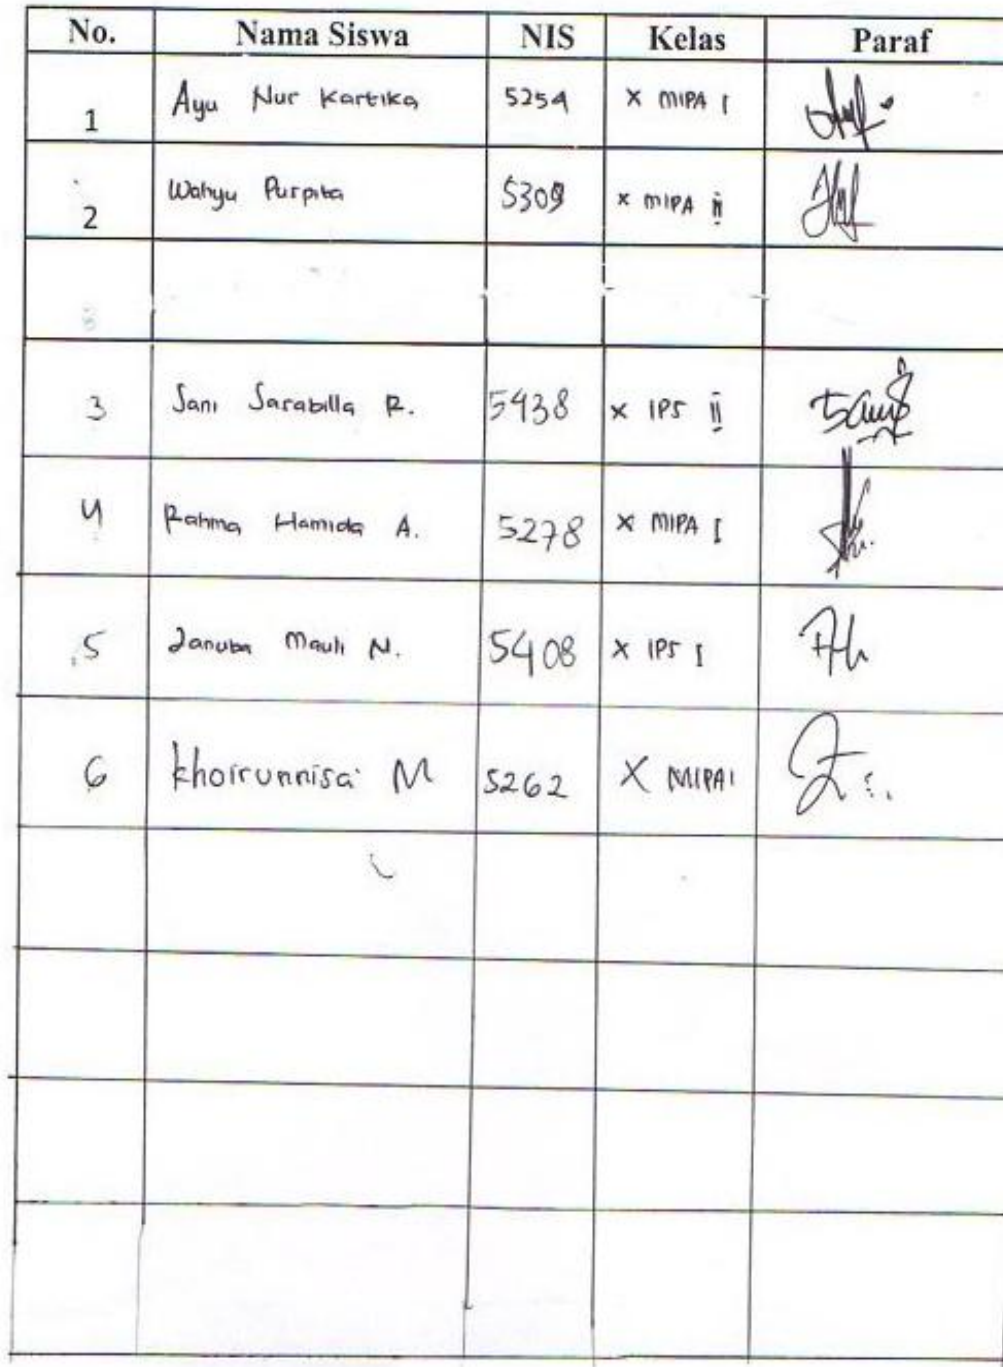 No. Nama Siswa NIS Kelas Paraf
1 Ayu Nur Kartika 5254 X MIPA I
2 Wahyu Purpita 5309 X MIPA II
3 Sani Sarabilla R. 5438 X IPS II
4 Rahma Hamida A. 5278 X MIPA I
5 Januba Mauli N. 5408 X IPS I
6 Khoirunnisa' M 5262 X MIPA1